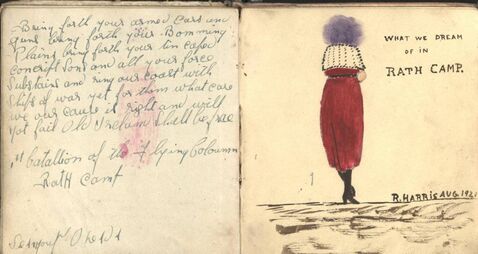 Bring forth your armed Cars and
guns bring forth your Bomming
Plains bring forth your tin caped
Conscript Sons and all your force
Substain and ring our coast with
Ships of war yet for them what care
we our cause is right and will
yet fail Old Ireland Shall be free
1st batallion of the flying Coloumn
Rath Camp
WHAT WE DREAM
OF IN
RATH CAMP.
R. HARRIS AUG 192